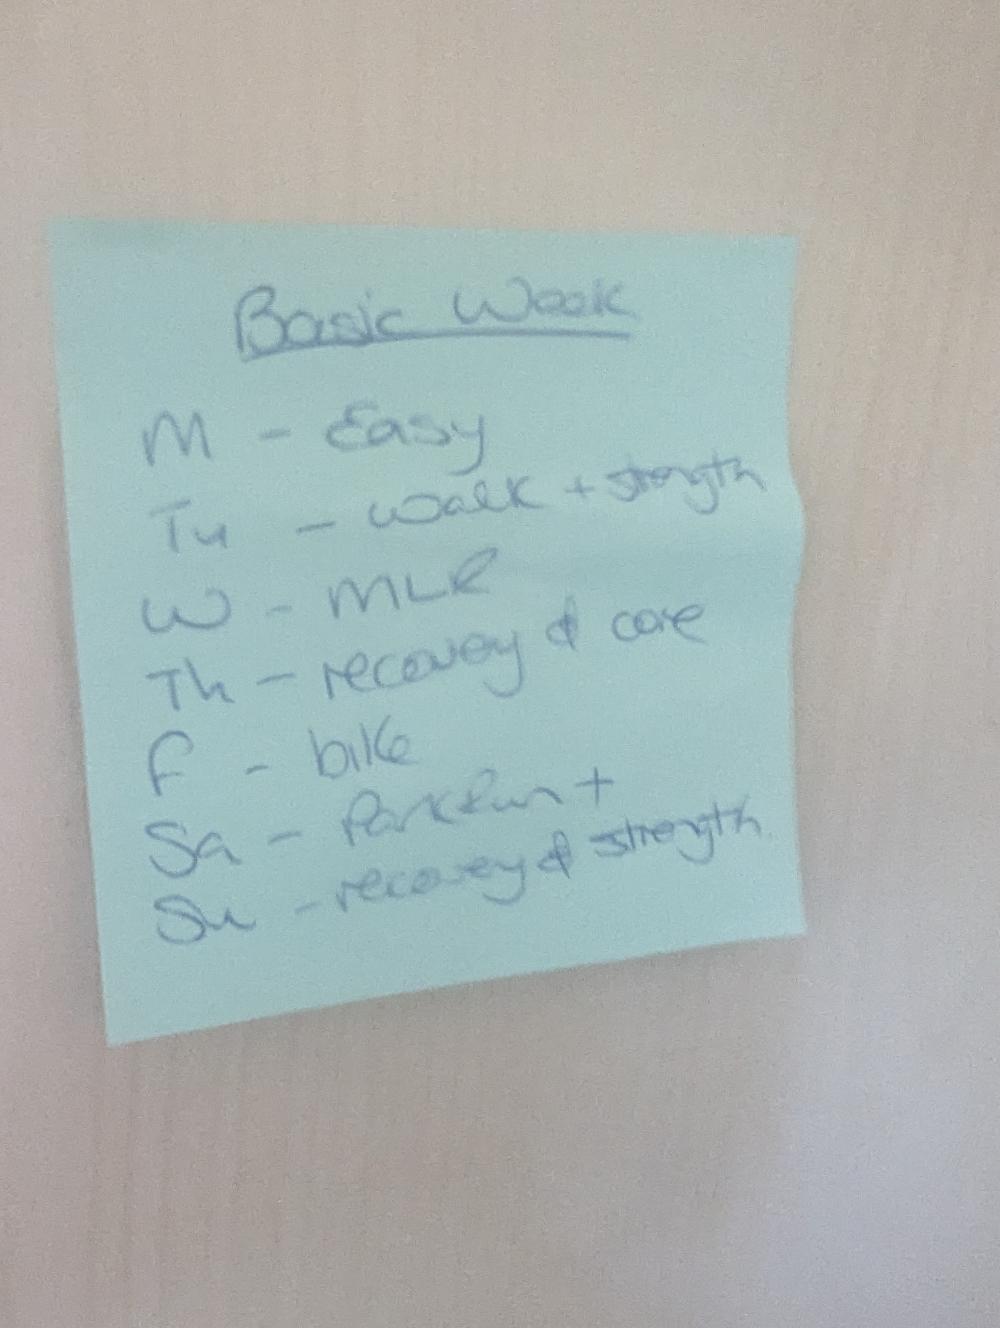 Basic Week
M - Easy
Tu - Walk + strength
W - MLR
Th - recovery & core
F - bike
Sa - ParkRun +
Su - recovery & strength